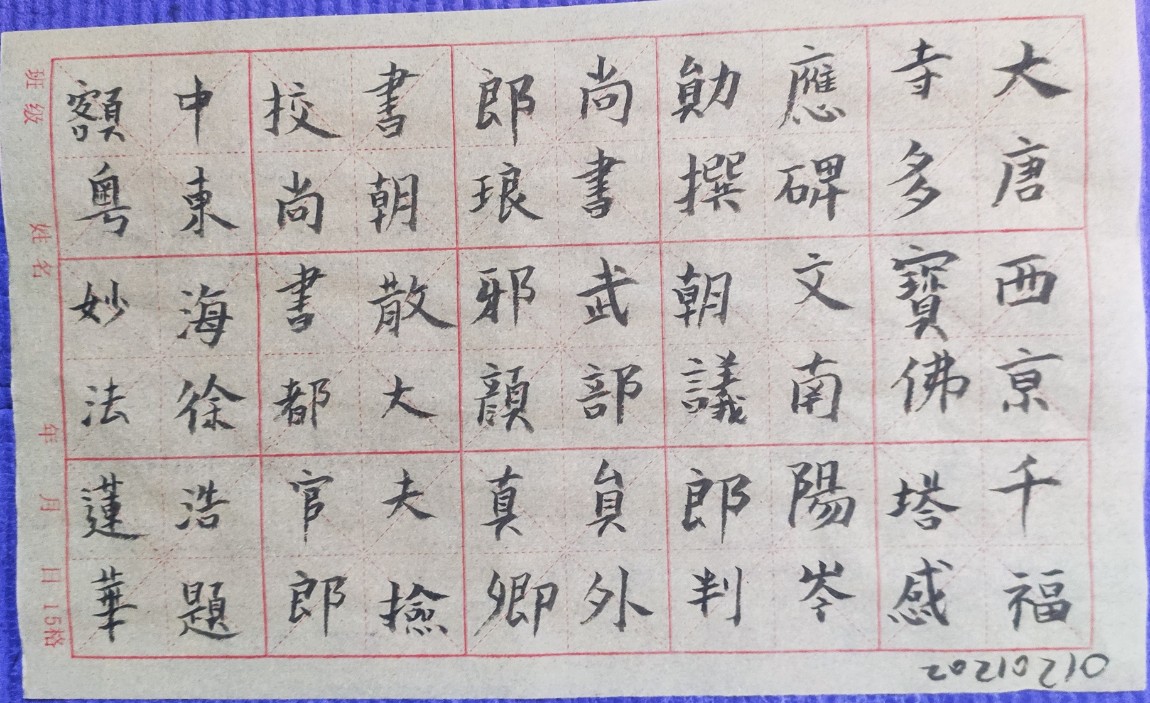 大唐西亰千福
寺多寶佛塔感
應碑文南陽岑
勛撰朝議郎判
尚書武部員外
郎琅邪顏真卿
書朝散大夫撿
挍尚書都官郎
中東海徐浩題
額粵妙法蓮華
班级 姓名 年 月 日 15格
20210210